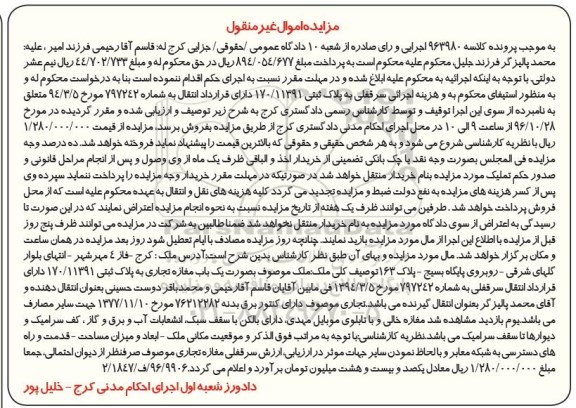 مزایده اموال غیر منقول
به موجب پرونده کلاسه ۹۶۳۹۸۰ اجرایی و رای صادره از شعبه ۱۰ دادگاه عمومی /حقوقی/ جزایی کرج له: قاسم آقا رحیمی فرزند امیر ، علیه:
محمد پالیز گر فرزند جلیل، محکوم علیه محکوم است به پرداخت مبلغ ۸۹۴/۰۵۴/۶۷۷ ریال در حق محکوم له و مبلغ ۴۴/۷۰۲/۷۳۳ ریال نیم عشر
دولتی. با توجه به اینکه اجرائیه به محکوم علیه ابلاغ شده و در مهلت مقرر نسبت به اجرای حکم اقدام ننموده است بنا به درخواست محکوم له و
به منظور استیفای محکوم به و هزینه اجرائی سرقفلی به پلاک ثبتی ۱۷۰/۱۱۳۹۱ دارای قرارداد انتقال به شماره ۷۹۷۲۴۲ مورخ ۹۴/۳/۵ متعلق
به نامبرده از سوی این اجرا توقیف و توسط کارشناس رسمی دادگستری کرج به شرح زیر توصیف و ارزیابی شده و مقرر گردیده در مورخ
۹۶/۱۰/۲۸ از ساعت ۹ الی ۱۰ در محل اجرای احکام مدنی دادگستری کرج از طریق مزایده بفروش برسد. مزایده از قیمت ۱/۲۸۰/۰۰۰/۰۰۰
ریال با نظریه کارشناسی شروع می شود و به هر شخص حقیقی و حقوقی که بالاترین قیمت را پیشنهاد نماید فروخته خواهد شد. ده درصد وجه
مزایده فی المجلس بصورت وجه نقد یا چک بانکی تضمینی از خریدار اخذ و الباقی ظرف یک ماه از وی وصول و پس از انجام مراحل قانونی و
صدور حکم تملیک مورد مزایده بنام خریدار منتقل خواهد شد. در صورتیکه در مهلت مقرر خریدار وجه مزایده را پرداخت ننماید سپرده وی
پس از کسر هزینه های مزایده به نفع دولت ضبط و مزایده تجدید می گردد کلیه هزینه های نقل و انتقال به عهده محکوم علیه است که از محل
فروش پرداخت خواهد شد . طرفین می توانند ظرف یک هفته از تاریخ مزایده نسبت به نحوه انجام مزایده اعتراض نمایند که در این صورت تا
رسیدگی به اعتراض از سوی دادگاه مورد مزایده به نام خریدار منتقل نخواهد شد ضمنا طالبین به شرکت در مزایده می توانند ظرف پنج روز
قبل از مزایده با اطلاع این اجرا از مال مورد مزایده بازید نمایند. چنانچه روز مزایده مصادف با ایام تعطیل شود روز بعد مزایده در همان ساعت
و مکان برگزار خواهد شد. مال مورد مزایده و بهای آن طبق نظر کارشناس بدین شرح است:آدرس ملک : کرج -فاز ۴ مهرشهر - انتهای بلوار
گلهای شرقی - روبروی پایگاه بسیج - پلاک ۱۶۳توصیف کلی ملک:ملک موصوف بصورت یک باب مغازه تجاری به پلاک ثبتی ۱۷۰/۱۱۳۹۱ دارای
قرارداد انتقال سرقفلی به شماره ۷۹۷۲۴۲ مورخ ۱۳۹۴/۳/۵ فی مابین آقایان قاسم آقارحیمی و محمدباقر دوست حسینی بعنوان انتقال دهنده و
آقای محمد پالیز گر بعنوان انتقال گیرنده می باشد.تجاری موصوف دارای کنتور برق بدنه ۷۶۲۱۲۲۸۲ مورخ ۱۳۷۷/۱۱/۱۰ جهت سایر مصارف
می باشد.یوم بازدید مشاهده شد مغازه خالی و با تابلوی موبایل مهدی، دارای بالکن با سقف سبک، انشعابات آب و برق و گاز ، کف سرامیک و
دیوارها تا سقف سرامیک می باشد.نظریه کارشناسی:با توجه به مراتب فوق الذکر و موقعیت مکانی ملک - ابعاد و میزان مساحت - قدمت و راه
های دسترسی به شبکه معابر و با لحاظ نمودن سایر جهات موثر در ارزیابی، ارزش سرقفلی مغازه تجاری موصوف صرفنظر از دیوان احتمالی، جمعا
مبلغ ۱/۲۸۰/۰۰۰/۰۰۰ ریال معادل یکصد و بیست و هشت میلیون تومان برآورد و اعلام می گردد.۹۶/۹۹۰۶/ف/۲/۱۸۴۷
دادورز شعبه اول اجرای احکام مدنی کرج - خلیل پور